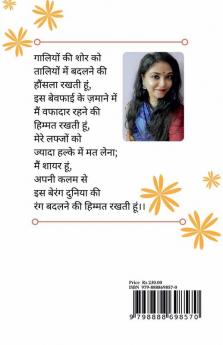 गालियों की शोर को
तालियों में बदलने की
हौंसला रखती हूं,
इस बेवफाई के ज़माने में
मैं वफादार रहने की
हिम्मत रखती हूं,
मेरे लफ्जों को
ज्यादा हल्के में मत लेना;
मैं शायर हूं,
अपनी कलम से
इस बेरंग दुनिया की
रंग बदलने की हिम्मत रखती हूं।।
Price Rs 230.00
ISBN 979-888869857-0
9 798888 698570